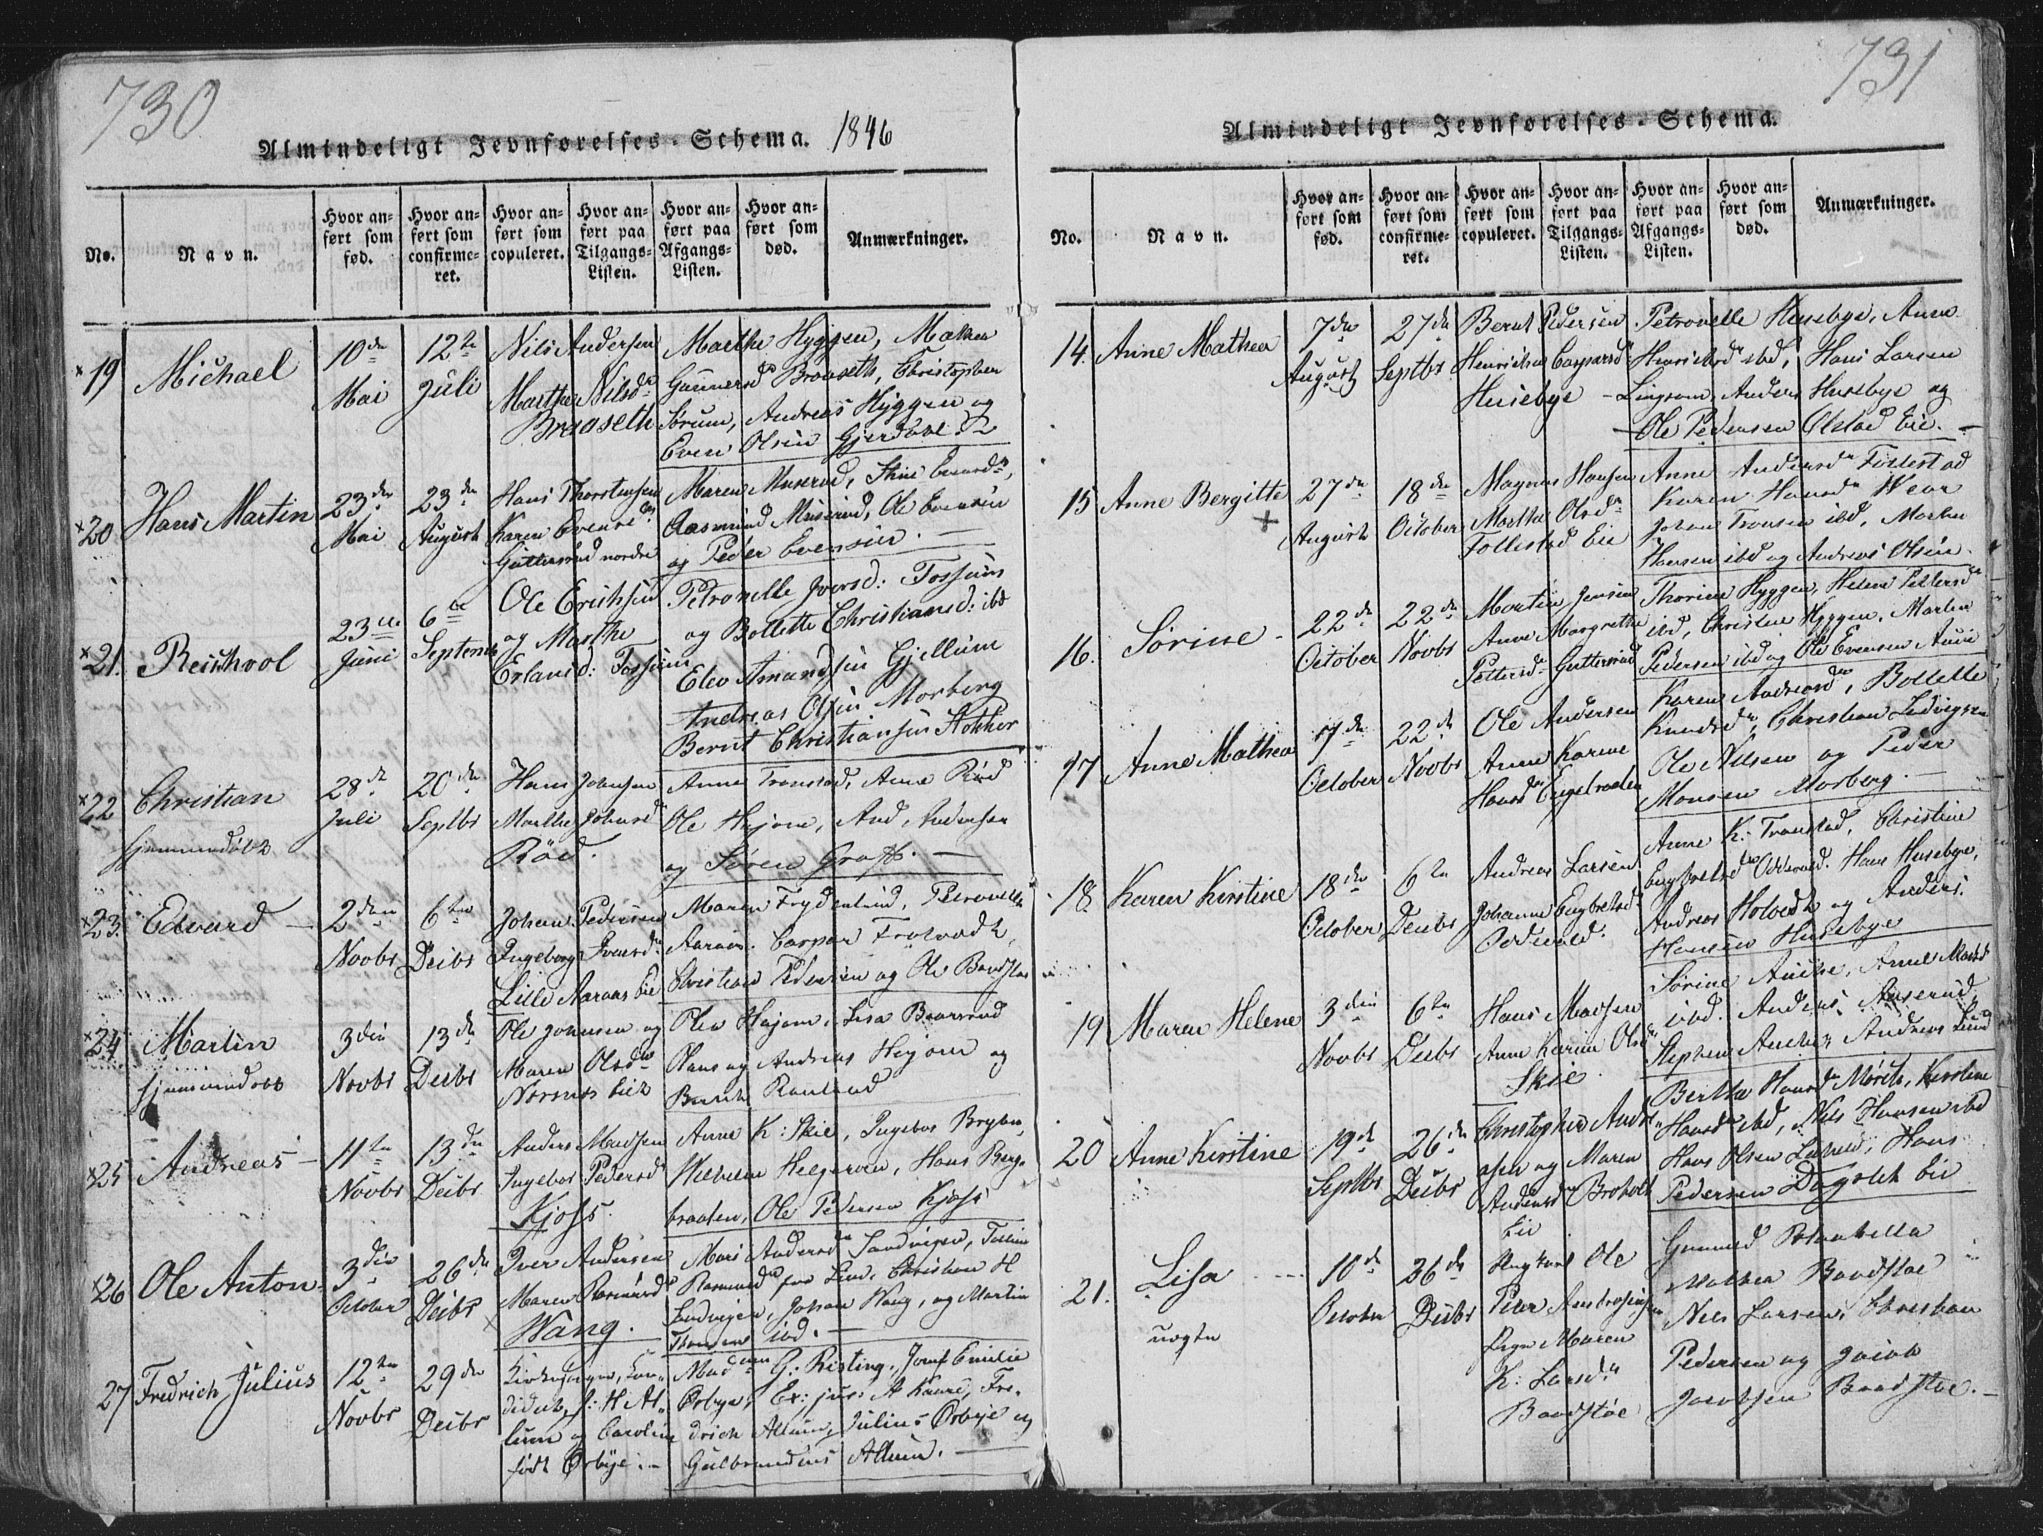 730
Almindeligt Jevnførelses-Schema. 1846
No.
Navn.
Hvor anført som fød.
Hvor anført som confirmeret.
Hvor anført som copuleret.
Hvor anført paa Tilgangs-Listen.
Hvor anført paa Afgangs-Listen.
Hvor anført som død.
Anmærkninger.
19 Michael
10de Mai
12te Juli
Nils Andersen
Marthe Nilsd.
Braaseth
Marthe Hyggen, Mathea
Gunnersd. Braaseth, Christopher
Sørum, Andreas Hyggen og
Even Olsen Gjerdal
20 Hans Martin
23de Mai
23de August
Hans Thorstensen
Karen Evensd.
Guttersrud nordre
Maren Muserud,
Aasmund Muserud, Ole Evensen
og Peder Evensen.
21. Reinhvol
23de Juni
6te Septemb
Ole Erichsen
og Marthe
Erlansd: Fossum
Petronelle Iversd: Fossum
og Bollette Christiansd: ibd
Elev Amundsen Gjellum
Andreas Olsen Morberg
Bernt Christiansen Stokker
22 Christian
hjemmedøbt
28de Juli
20de Septbr
Hans Johnsen
Marthe Johnsd
Rød.
Anne Tronstad, Anne Rød
Ole Hajom, And. Andersen
og Søren Graff.
23. Edvard
2den Novbr
6te Decbr
Johan Pedersen
Ingeborg Iversd.
Lille Aaraas Eie
Maren Frydenlund, Petronelle
Aaraas. Caspar
Christian Pedersen og Ole Baadstø
24. Martin
hjemmedøbt
3die Novbr
13de Decbr
Ole Johnsen og
Maren Olsd.
Nærsnæs Eie
Olea Hajom, Lisa
og Andreas Hajom og
Bernt
25 Andreas
11te Novbr
13de Decbr
Anders Madsen
Ingebor Pedersd
Kjøss
Anne K: Skie, Ingebor
Wilhelm Helgerøen, Hans Berg-
braaten, Ole Pedersen Kjøss
26 Ole Anton
3die October
26de Decbr
Iver Andersen
Maren Rasmusd
Wang.
Mari Andersd. Sandvigen,
Rasmusd. Christian H
Sandvigen, Johan Haug, og Martin
ibd.
27 Fredrich Julius
12te Novbr
29de Decbr
Kirkesanger, Can-
didat, J: H: Al-
lum og Caroline
født Ørbye.
Mad. G: Risting, Jomf Emilie
Ørbye, Ex: jur: A Kaurd, Fre-
drich Allum, Julius Ørbye og
Gulbrandus Allum.
731
Almindeligt Jevnførelses-Schema.
No.
Navn.
Hvor anført som fød.
Hvor anført som confirmeret.
Hvor anført som copuleret.
Hvor anført paa Tilgangs-Listen.
Hvor anført paa Afgangs-Listen.
Hvor anført som død.
Anmærkninger.
14. Anne Mathea
7de August
27de Septbr
Bernt Pedersen
Henrichea Caspersd
Husebye
Petronelle Husebye, Anne
Henrichsd ibd, Hans Larsen
Lingsom, Anders Husebye og
Ole Pedersen Ølstad Eie.
15 Anne Bergitte
27de August
18de October
Magnus Hansen
Marthe Olsd.
Follestad Eie
Anne Andersd. Follestad
Karen Hansd. Wear
Johan Tronsen ibd, Morten
Hansen ibd og Andreas Olsen.
16. Sørine
22de October
22de Novbr
Martin Jensen
Anne Margrethe
Pettersd. Guttersrud
Thorine Hyggen, Helene Pettersd
ibd, Christen Hyggen, Morten
Pedersen ibd og Ole Evensen
17 Anne Mathea
17de October
22de Novbr
Ole Andersen
Anne Karine
Hansd. Engebraaten
Karen Andreasd, Bollette
Knudsd, Christian Ludvigsen
Ole Nilsen og Peder
Monsen Morberg.
18. Karen Kirstine
18de October
6te Decbr
Andreas Larsen
Johanne Engbretsd
Odevald.
Anne K: Tronstad, Christine
Engbretsd Oddevald. Hans Husebye,
Andreas Holvedt og Anders.
Hansen Husebye
19 Maren Helene
3die Novbr
6te Decbr
Hans Madsen
Anne Karine Olsd
Skie.
Sørine Auche, Anne Madsd
ibd. Anders
Stephen Andreas Lind
20 Anne Kirstine
19de Septbr
26de Decbr
Christopher Andr-
esen og Maren
Andersd. Broholt
Eie
Berthe Hansd. Kirstine
Hansd ibd, Nils Hansen ibd
Hans Olsen Hans
Pedersen Dagslet Eie
21. Lisa
uægte
10de October
26de Decbr
Ungkarl Ole
Peter Ambrosiussen
Pigen Maren
K: Larsd.
Baadstøe
Gunnild
Mathea Baadstøe
Nils Larsen, Christian
Pedersen og Jacob
Jacobsen Baadstøe.